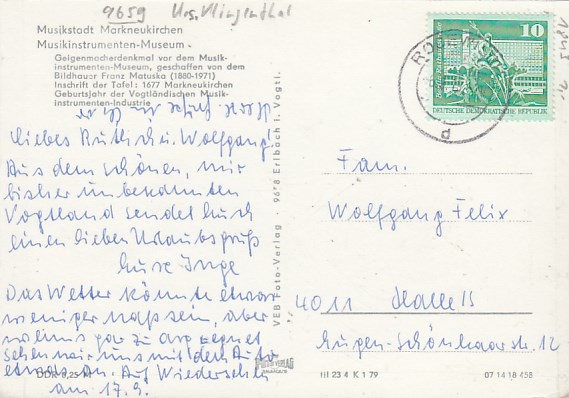 9659 Urs. Klingenthal
Musikstadt Markneukirchen
Musikinstrumenten-Museum
Geigenmacherdenkmal vor dem Musik-
instrumenten-Museum, geschaffen von dem
Bildhauer Franz Matuska (1880-1971)
Inschrift der Tafel: 1677 Markneukirchen
Geburtsjahr der Vogtländischen Musik-
instrumenten-Industrie
Liebes Ruthchen u. Wolfgang!
Aus dem schönen, mir
bisher unbekannten
Vogtland sendet Euch
einen lieben Urlaubsgruß
Eure Inge
Das Wetter könnte etwas
weniger naß sein, aber
wenns gar zu arg regnet
sehen wir uns mit dem Auto
etwas an. Auf Wiedersehen
am 17.9.
VEB Foto-Verlag · 9678 Erlbach i. Vogtl.
10
DEUTSCHE DEMOKRATISCHE REPUBLIK
d
Fam.
Wolfgang Felix
4011 Halle/S
Eugen-Schönhaar-Str. 12
III 23 4 K 1 79
07 14 18 458